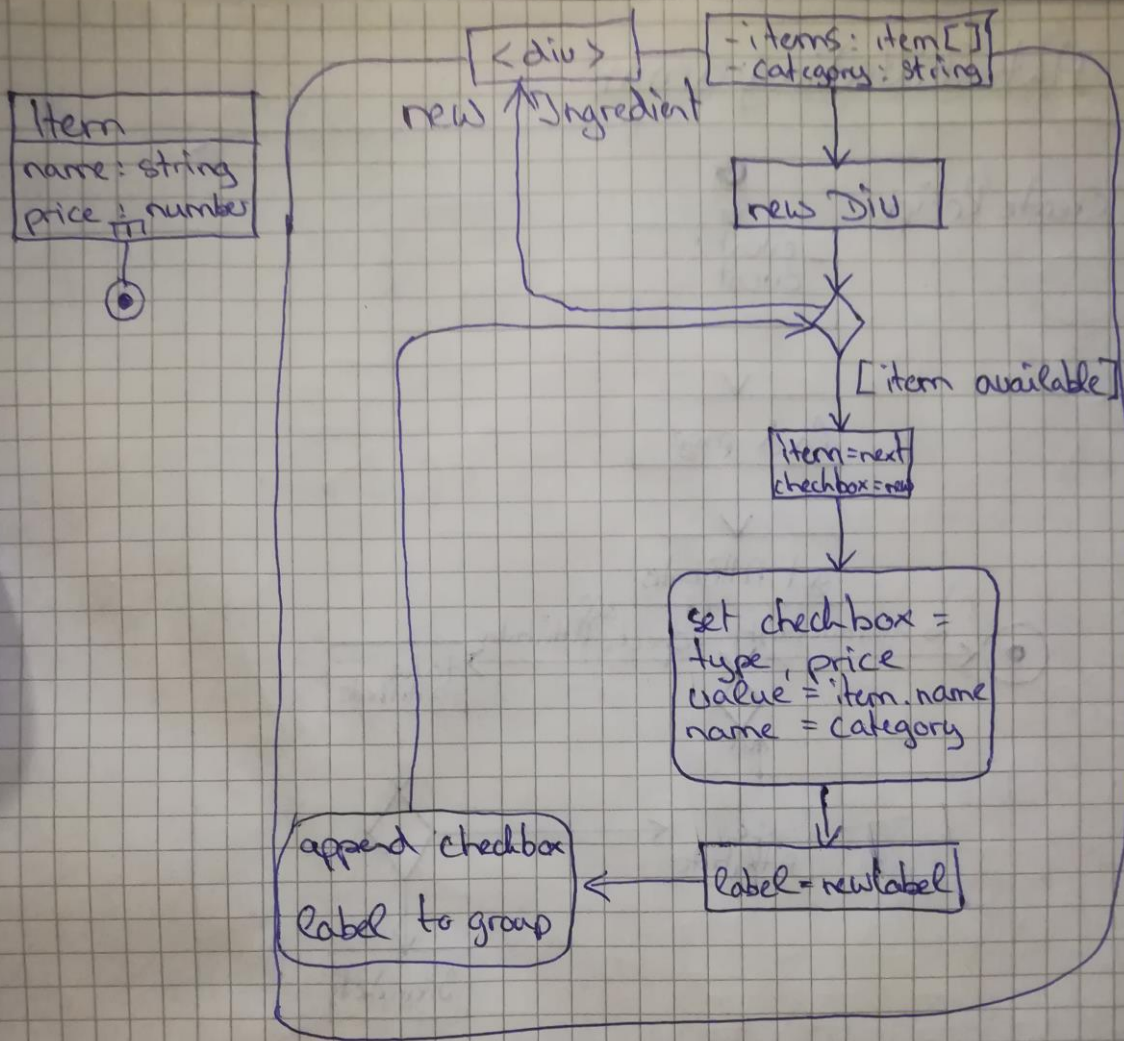 Item
name: string
price : number
<div>
new Ingredient
- items: item[]
- category: string
new Div
[item available]
item=next
checkbox=new
set checkbox =
type, price
value = item.name
name = category
label = newlabel
append checkbox
label to group